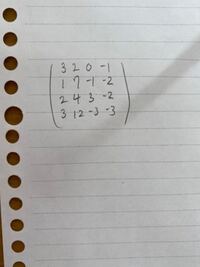 3 2 0 -1
1 7 -1 -2
2 4 3 -2
3 12 -3 -3